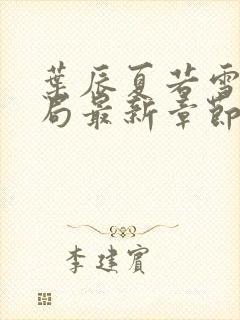 葉辰夏若雪
局最新章節
李建賓